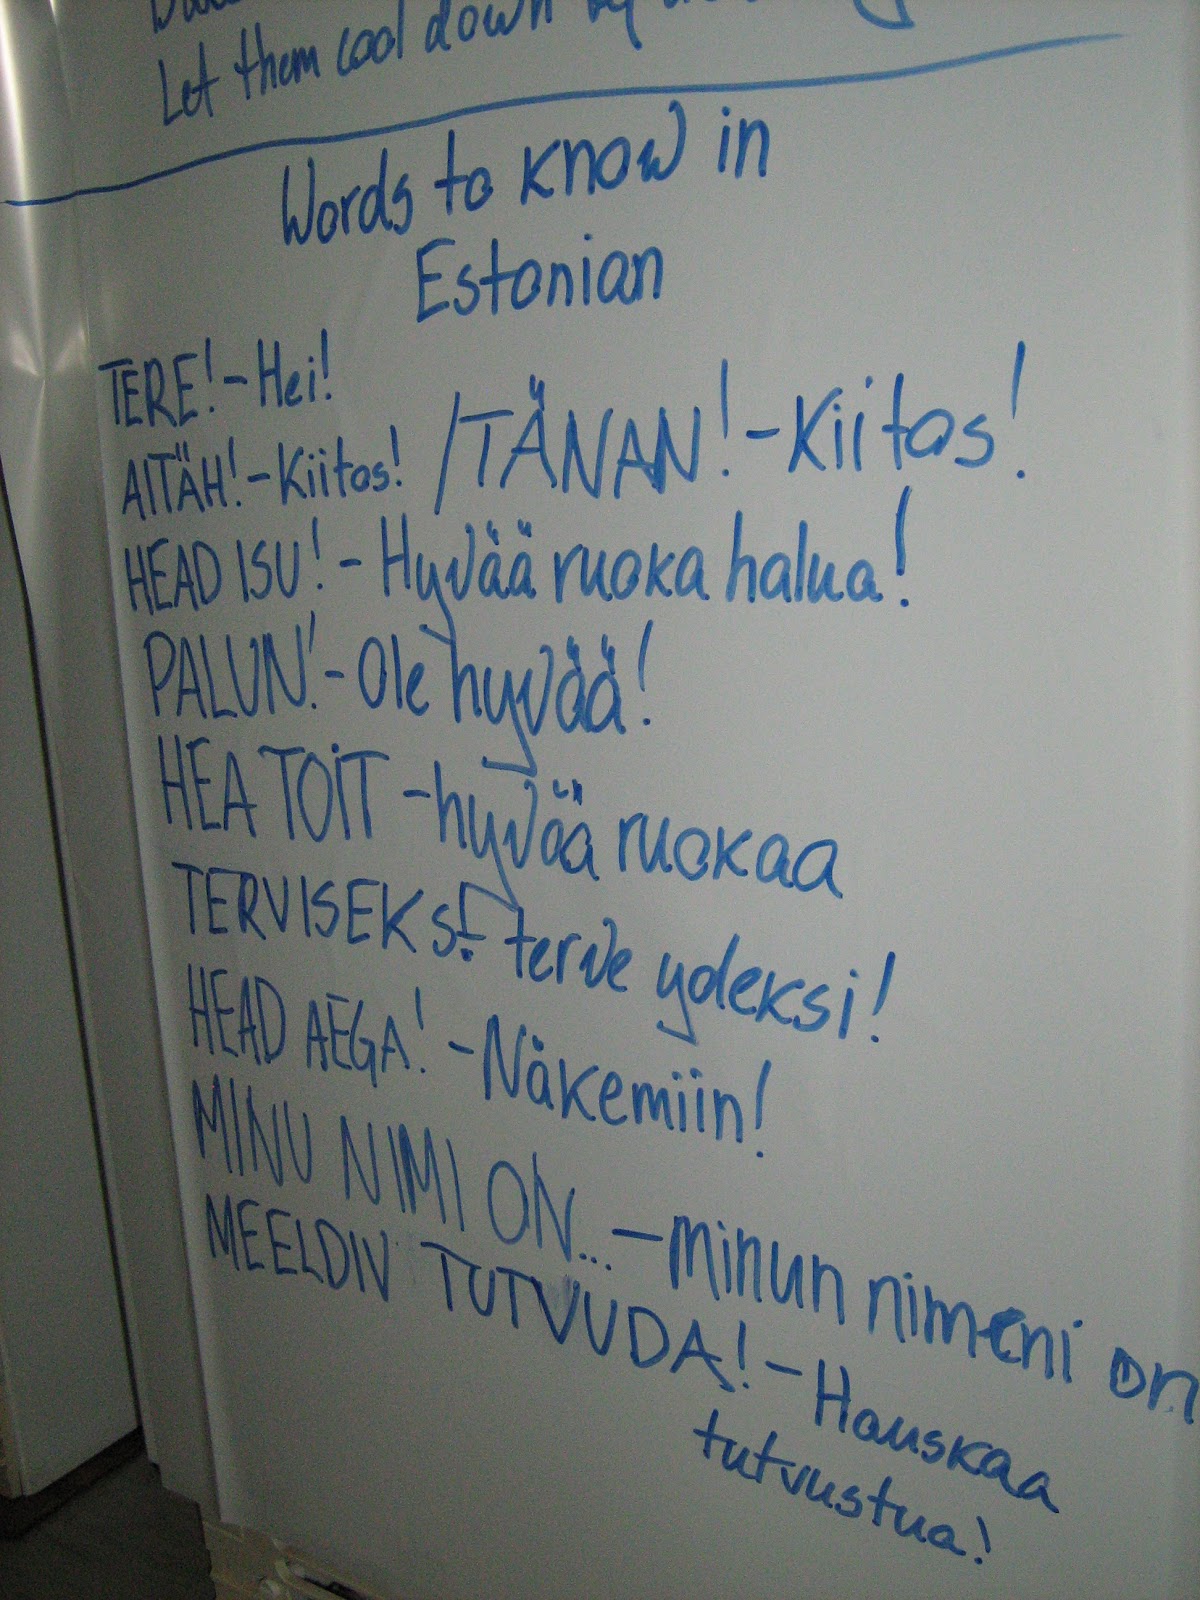 Let them cool down
Words to know in
Estonian
TERE! - Hei!
AITÄH! - Kiitos! / TÄNAN! - Kiitos!
HEAD ISU! - Hyvää ruoka halua!
PALUN! - Ole hyvää!
HEA TOIT - hyvää ruokaa
TERVISEKS! - terve ydeksi!
HEAD AEGA! - Näkemiin!
MINU NIMI ON... - minun nimeni on
MEELDIV TUTVUDA! - Hauskaa
tutvustua!